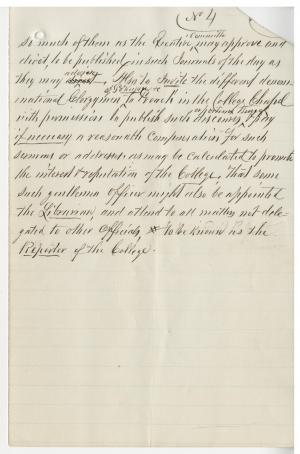 No 4
so much of them as the Executive Committee may approve and
direct to be published in such Journals of the day as
they may
Also to Invite the different denom-
inational Clergymen to Preach in the College Chapel
with permission to publish such discourses, & pay
if necessary a reasonable compensation for such
sermons or addresses as may be calculated to promote
the interest & reputation of the College, that some
such gentleman Officer might also be appointed
the Librarian, and attend to all matters not dele-
gated to other officials to be known as the
Reporter of the College.